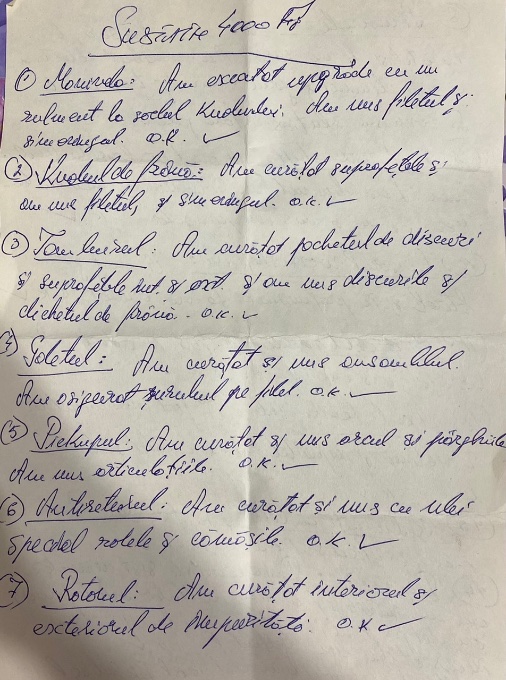 Sustain 4000 FJ
① Manivela: Am executat upgrade cu un
rulment la soclul knobului. Am uns filetul și
simeringul. O.K. ✓
② Knobul de frână: Am curățat suprafețele și
am uns filetul, și simeringul. O.K. ✓
③ Tamburul: Am curățat pachetul de discuri
și suprafețele int. și ext. și am uns discurile și
clichetul de frână. O.K. ✓
④ Galetul: Am curățat și uns ansamblul.
Am asigurat șurubul pe filet. O.K. ✓
⑤ Pickupul: Am curățat și uns arcul și pârghiile
Am uns articulațiile. O.K. ✓
⑥ Antireturul: Am curățat și uns cu ulei
special rolele și cămășile. O.K. ✓
⑦ Rotorul: Am curățat interiorul și
exteriorul de impurități. O.K ✓